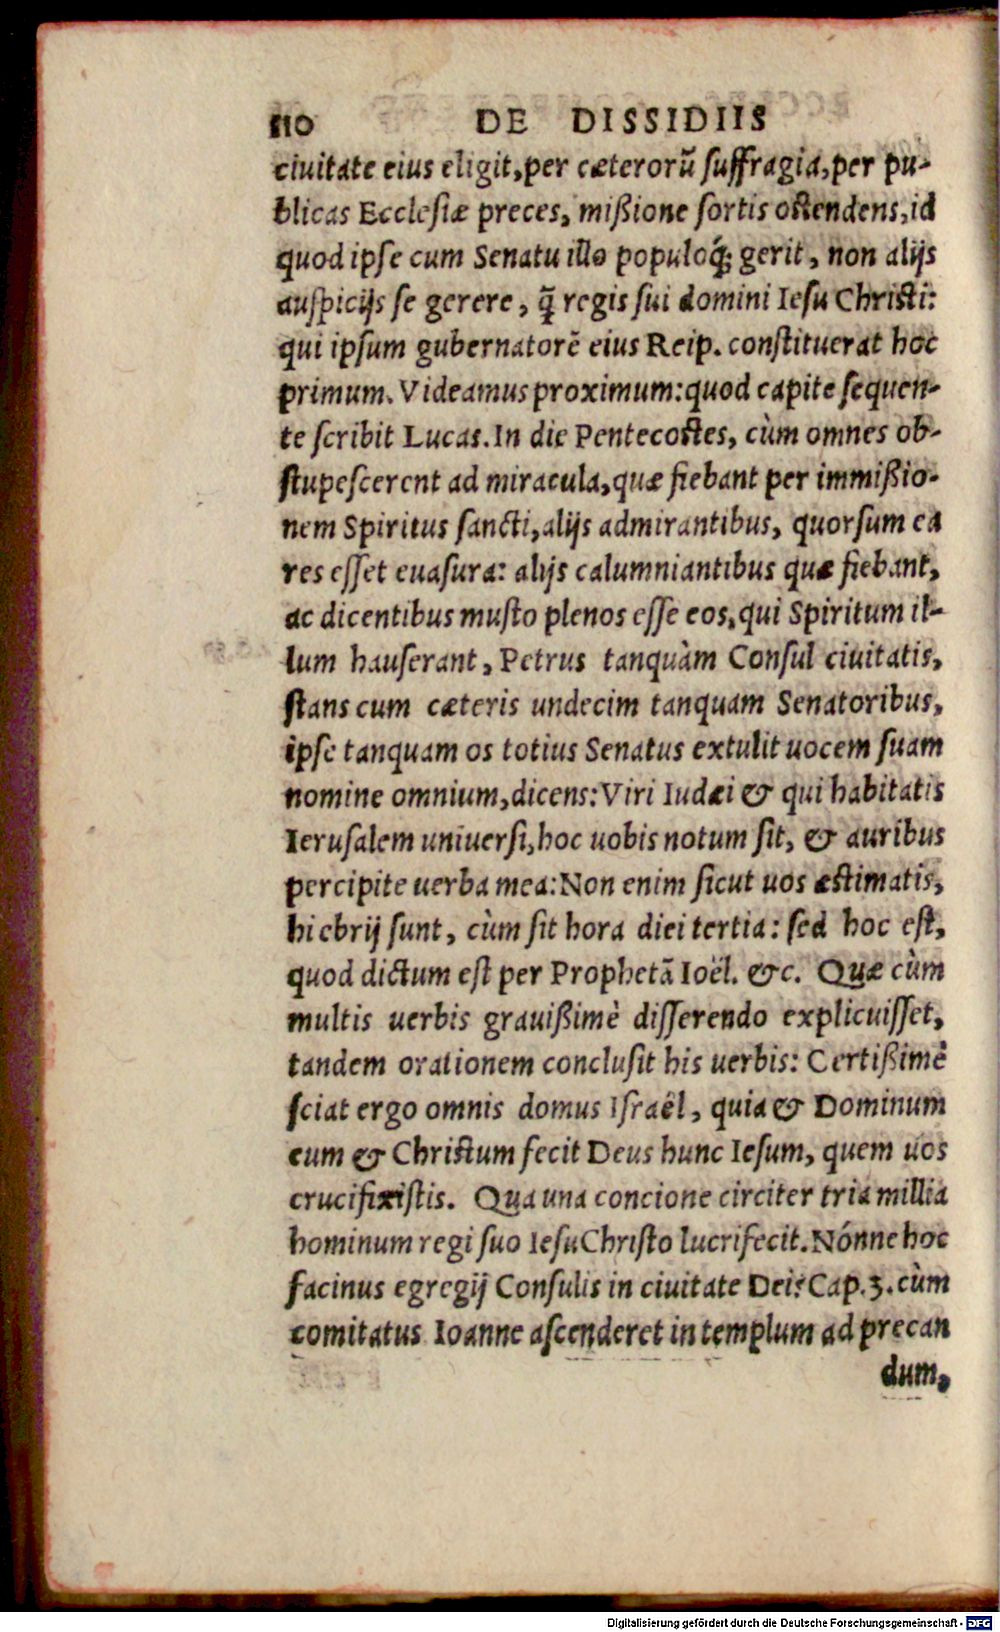 110 DE DISSIDIIS
ciuitate eius eligit, per cæterorũ suffragia, per pu-
blicas Ecclesiæ preces, mißione sortis ostendens, id
quod ipse cum Senatu illo populoq́; gerit, non alijs
auspicijs se gerere, q̃ regis sui domini Iesu Christi:
qui ipsum gubernatorẽ eius Reip. constituerat hoc
primum. Videamus proximum: quod capite sequen-
te scribit Lucas. In die Pentecostes, cùm omnes ob-
stupescerent ad miracula, quæ fiebant per immißio-
nem Spiritus sancti, alijs admirantibus, quorsum ea
res esset euasura: alijs calumniantibus quæ fiebant,
ac dicentibus musto plenos esse eos, qui Spiritum il-
lum hauserant, Petrus tanquàm Consul ciuitatis,
stans cum cæteris undecim tanquam Senatoribus,
ipse tanquam os totius Senatus extulit uocem suam
nomine omnium, dicens: Viri Iudæi & qui habitatis
Ierusalem uniuersi, hoc uobis notum sit, & auribus
percipite uerba mea: Non enim sicut uos æstimatis,
hi ebrij sunt, cùm sit hora diei tertia: sed hoc est,
quod dictum est per Prophetã Ioël. &c. Quæ cùm
multis uerbis grauißimè disserendo explicuisset,
tandem orationem conclusit his uerbis: Certißimè
sciat ergo omnis domus Israël, quia & Dominum
eum & Christum fecit Deus hunc Iesum, quem uos
crucifixistis. Qua una concione circiter tria millia
hominum regi suo Iesu Christo lucrifecit. Nónne hoc
facinus egregij Consulis in ciuitate Dei? Cap. 3. cùm
comitatus Ioanne ascenderet in templum ad precan
dum,
Digitalisierung gefördert durch die Deutsche Forschungsgemeinschaft - DFG